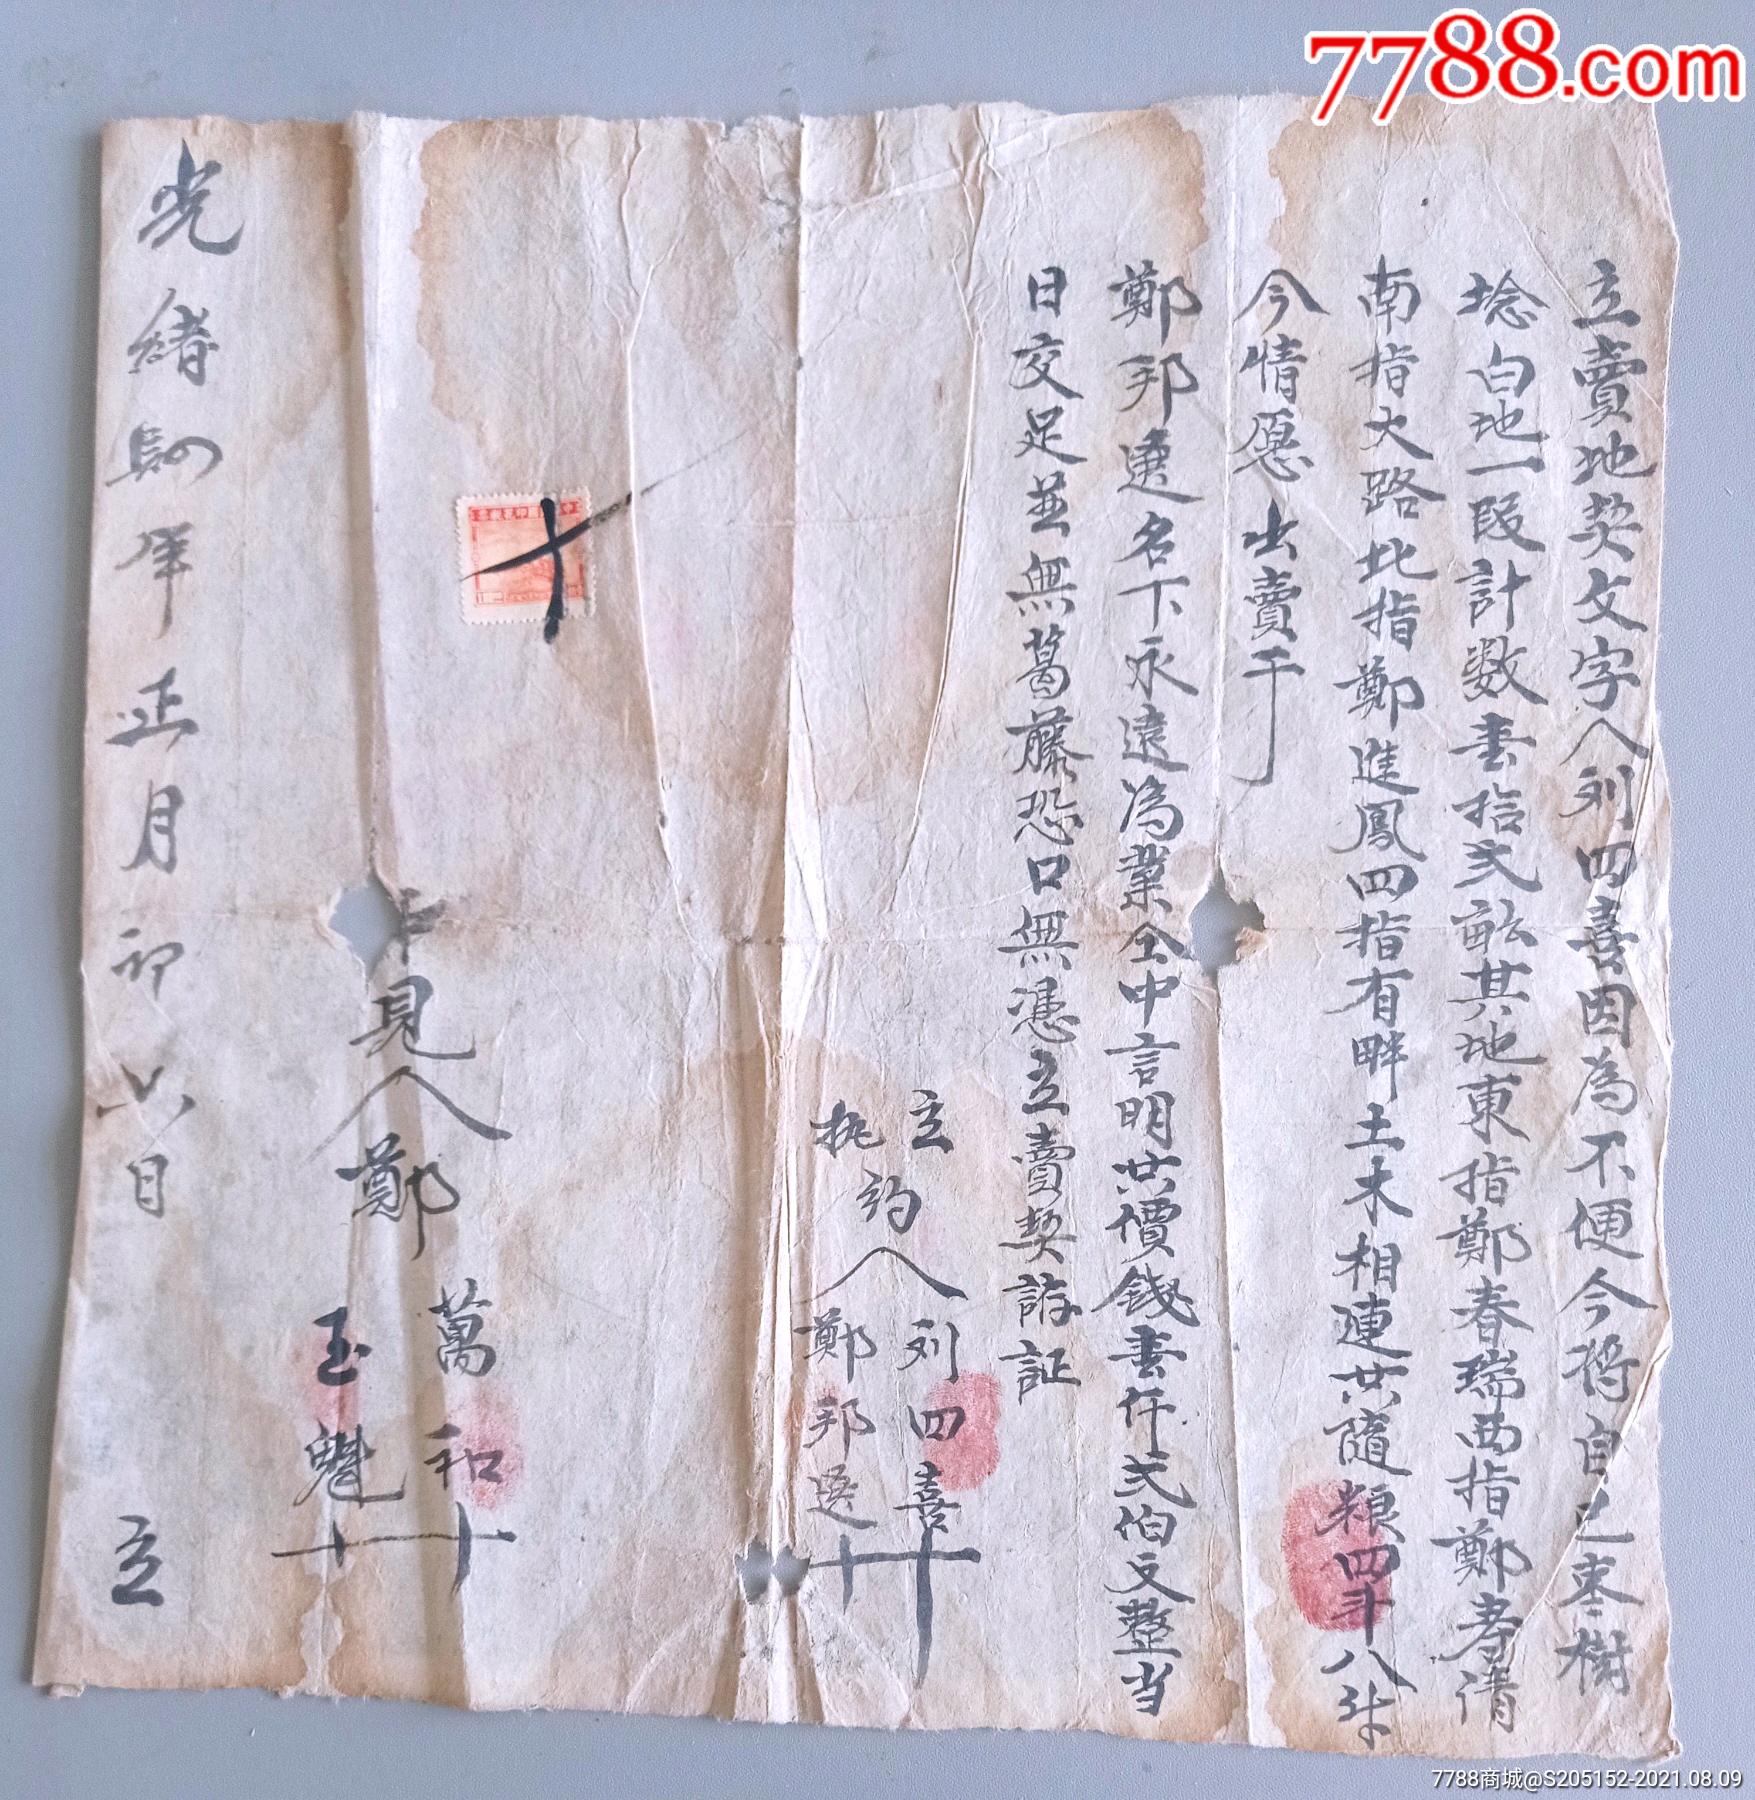 7788.com
立賣地契文字人列四喜因為不便今將自己枣樹
埝白地一段計数壹拾弍畝其地東指鄭春瑞西指鄭孝清
南指大路北指鄭進鳳四指有畔土木相連共隨粮四斗八升
今情愿出賣于
鄭邦選名下永遠為業仝中言明共價錢壹仟弍伯文整当
日交足並無葛藤恐口無憑立賣契存証
立
执
約人
列四喜十
鄭邦選十
中見人鄭
萬和十
玉魁十
光緒年正月初六日
立
7788商城@S205152-2021.08.09